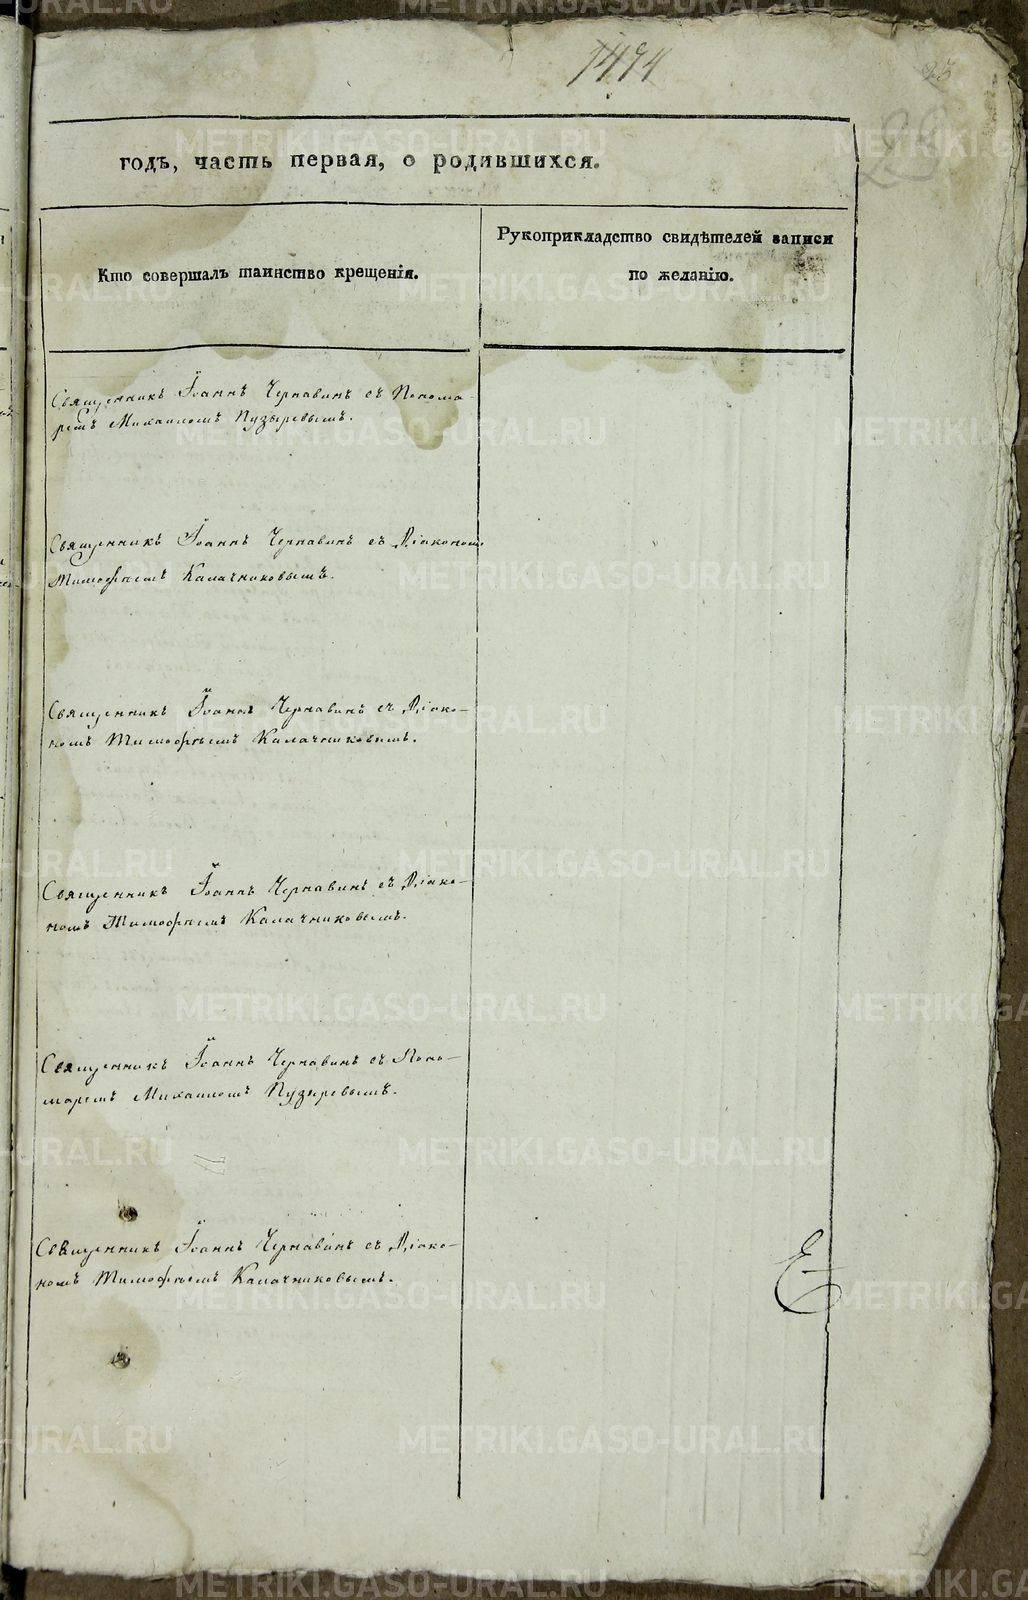 1494
23
годъ, часть первая, о родившихся.
Кто совершалъ таинство крещенія.
Рукоприкладство свидѣтелей записи
по желанію.
Священникъ Іоаннъ Чернавинъ съ Понома-
ремъ Михаиломъ Пузыревымъ.
Священникъ Іоаннъ Чернавинъ съ Діакономъ
Тимофеемъ Калачниковымъ.
Священникъ Іоаннъ Чернавинъ съ Діако-
номъ Тимофѣемъ Калачниковымъ.
Священникъ Іоаннъ Чернавинъ съ Діако-
номъ Тимофѣемъ Калачниковымъ.
Священникъ Іоаннъ Чернавинъ съ Поно-
маремъ Михаиломъ Пузыревымъ.
Священникъ Іоаннъ Чернавинъ съ Діако-
номъ Тимофѣемъ Калачниковымъ.
METRIKI.GASO-URAL.RU